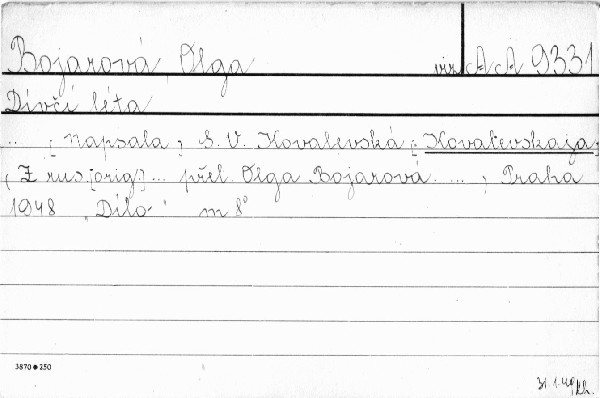 Bojarová Olga viz AA 9331
Dívčí léta
.. [Napsala] S. V. Kovalevská [: Kovalevskaja]
( Z rus.[orig] ... přel. Olga Bojarová. ... , Praha
1948 „Dílo“ m 8°
3870 ● 250
31.1.49